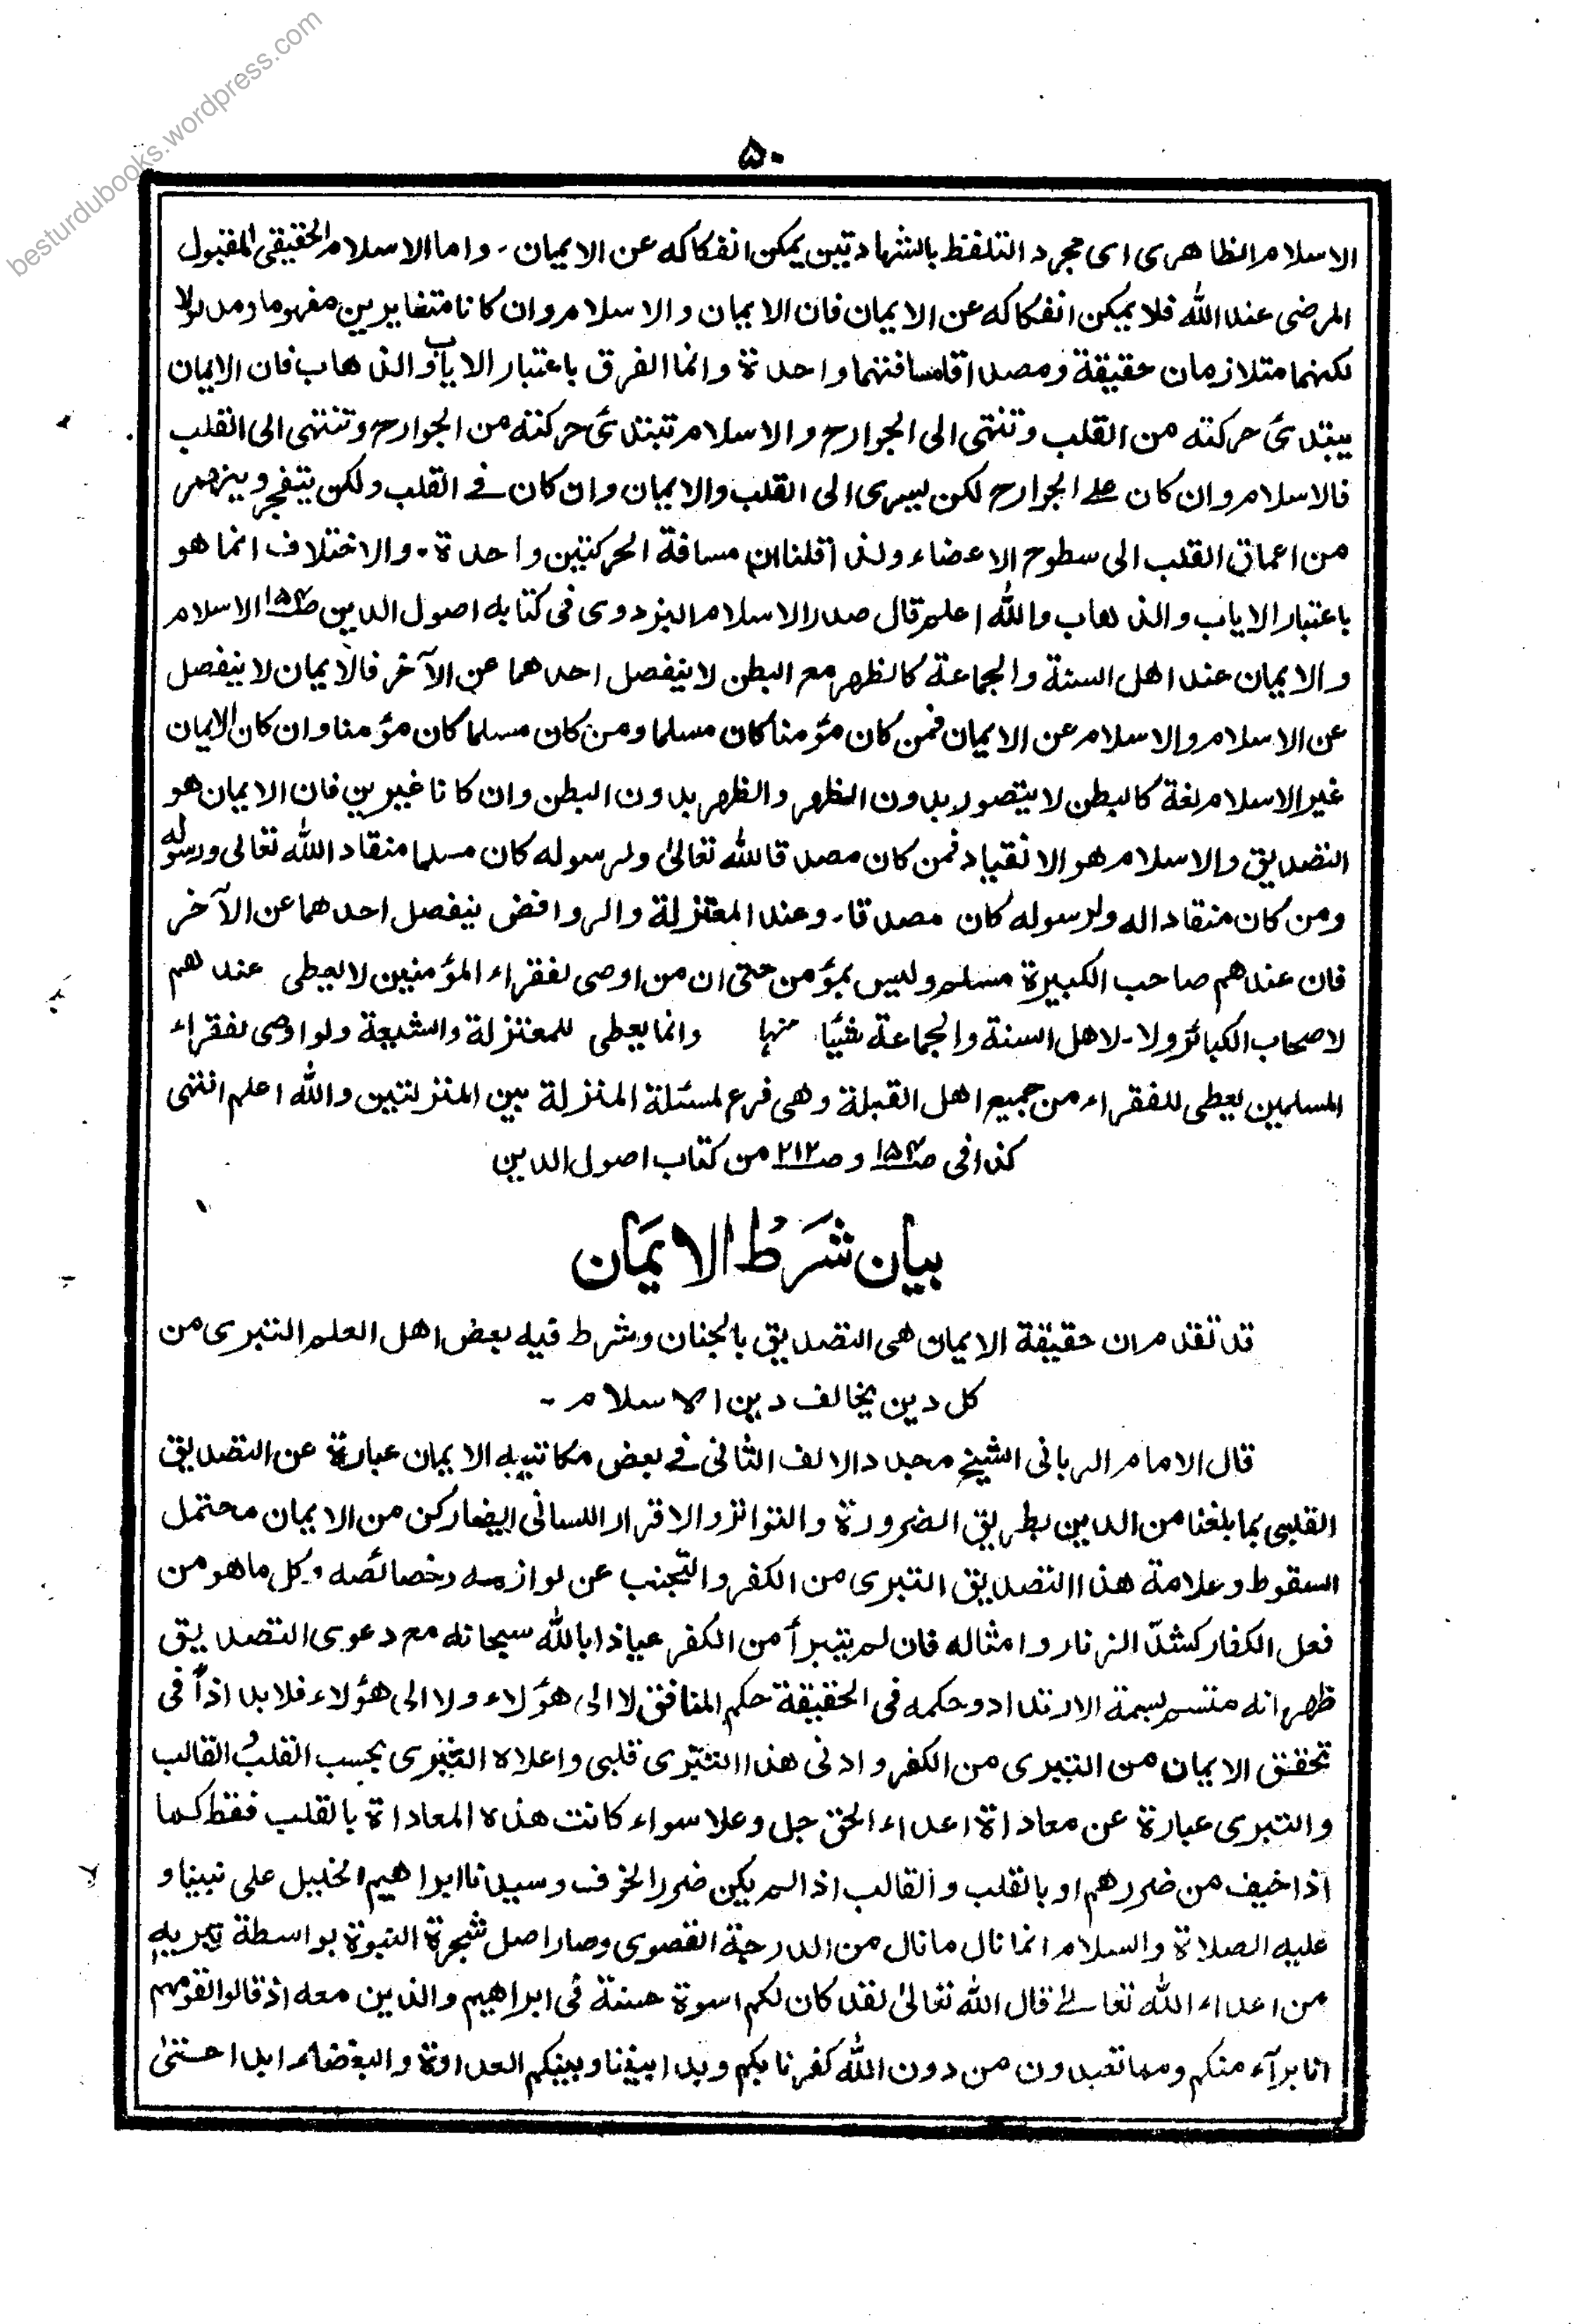 besturdubooks.wordpress.com
۵۰
الاسلام الظاهری ای مجرد التلفظ بالشهادتین یمکن انفکاکه عن الایمان ۔ واما الاسلام الحقیقی المقبول
المرضی عند الله فلا یمکن انفکاکه عن الایمان فان الایمان والاسلام وان کانا متغایرین مفهوما ومدلولا
لکنهما متلازمان حقیقة ومصداقا مسافتهما واحدة وانما الفرق باعتبار الایاب والذهاب فان الایمان
یبتدئ حرکته من القلب وتنتهی الی الجوارح والاسلام تبتدئ حرکته من الجوارح وتنتهی الی القلب
فالاسلام وان کان علی الجوارح لکن یسری الی القلب والایمان وان کان فی القلب ولکن یتفجر وینهمر
من اعماق القلب الی سطوح الاعضاء ولذا قلنا ان مسافة الحرکتین واحدة۔ والاختلاف انما هو
باعتبار الایاب والذهاب والله اعلم قال صدر الاسلام البزدوی فی کتابه اصول الدین صـ۱۵۴ الاسلام
والایمان عند اهل السنة والجماعة کالظهر مع البطن لا ینفصل احدهما عن الآخر فالایمان لا ینفصل
عن الاسلام والاسلام عن الایمان فمن کان مؤمنا کان مسلما ومن کان مسلما کان مؤمنا وان کان الایمان
غیر الاسلام لغة کالبطن لا یتصور بدون الظهر والظهر بدون البطن وان کانا غیرین فان الایمان هو
التصدیق والاسلام هو الانقیاد فمن کان مصدقا لله تعالیٰ ولرسوله کان مسلما منقاد الله تعالی ورسوله
ومن کان منقادا له ولرسوله کان مصدقا۔ وعند المعتزلة والروافض ینفصل احدهما عن الآخر
فان عندهم صاحب الکبیرة مسلم ولیس بمؤمن حتی ان من اوصی لفقراء المؤمنین لا یعطی عندهم
لاصحاب الکبائر ولا۔ لاهل السنة والجماعة شیئا منها وانما یعطی للمعتزلة والشیعة ولو اوصی لفقراء
المسلمین یعطی للفقراء من جمیع اهل القبلة وهی فرع لمسئلة المنزلة بین المنزلتین والله اعلم انتهی
کذا فی صـ۱۵۴ و صـ۲۱۲ من کتاب اصول الدین
بیان شَرَطُ الایمَان
قد تقدم ان حقیقة الایمان هی التصدیق بالجنان وشرط فیه بعض اهل العلم التبری من
کل دین یخالف دین الاسلام ۔
قال الامام الربانی الشیخ مجدد الالف الثانی فی بعض مکاتیبه الایمان عبارة عن التصدیق
القلبی بما بلغنا من الدین بطریق الضرورة والتواتر والاقرار اللسانی ایضا رکن من الایمان محتمل
السقوط وعلامة هذا التصدیق التبری من الکفر والتجنب عن لوازمه وخصائصه وکل ما هو من
فعل الکفار کشدّ الزنار وامثاله فان لم یتبرأ من الکفر عیاذا بالله سبحانه مع دعوی التصدیق
ظهر انه متسم بسمة الارتداد وحکمه فی الحقیقة حکم المنافق لا الی هؤلاء ولا الی هؤلاء فلا بد اذاً فی
تحقق الایمان من التبری من الکفر وادنی هذا التبرّی قلبی واعلاه التبری بحسب القلب والقالب
والتبری عبارة عن معاداة اعداء الحق جل وعلا سواء کانت هذه المعاداة بالقلب فقط کما
اذا خیف من ضررهم او بالقلب والقالب اذا لم یکن ضرر الخوف وسیدنا ابراهیم الخلیل علی نبینا و
علیه الصلاة والسلام انما نال ما نال من الدرجة القصوی وصار اصل شجرة النبوة بواسطة تبریه
من اعداء الله تعالیٰ قال الله تعالیٰ لقد کان لکم اسوة حسنة فی ابراهیم والذین معه اذ قالوا لقومهم
انا برآء منکم ومما تعبدون من دون الله کفرنا بکم وبدا بیننا وبینکم العداوة والبغضاء ابدا حتیٰ